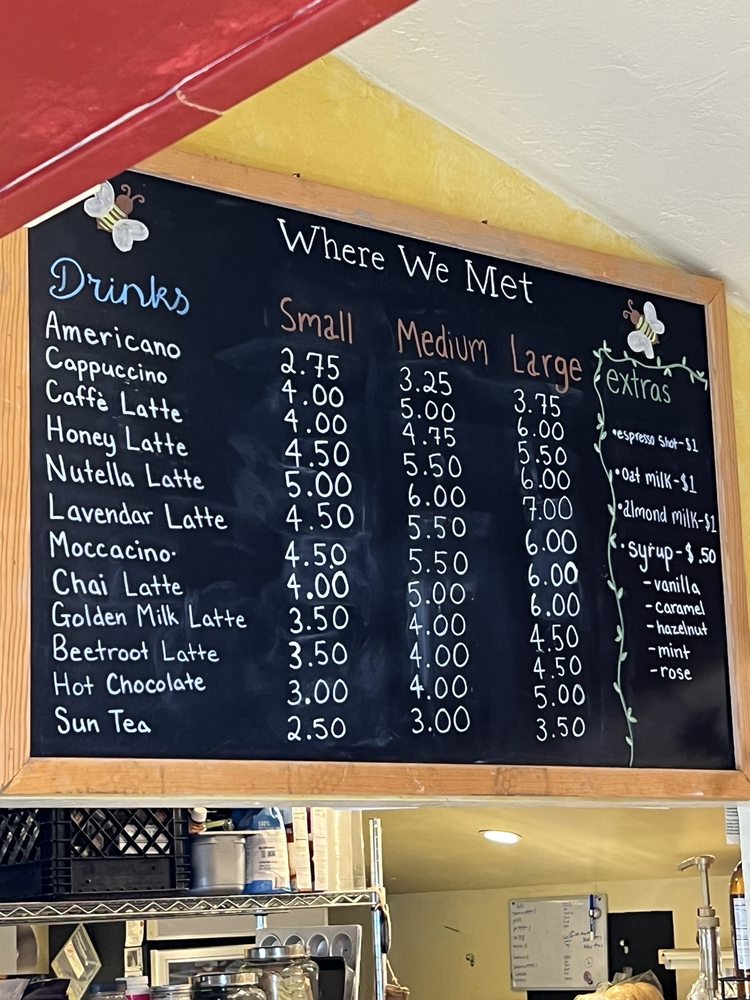 Where We Met
Drinks Small Medium Large
Americano 2.75 3.25 3.75
Cappuccino 4.00 5.00 6.00
Caffè Latte 4.00 4.75 5.50
Honey Latte 4.50 5.50 6.00
Nutella Latte 5.00 6.00 7.00
Lavendar Latte 4.50 5.50 6.00
Moccacino 4.50 5.50 6.00
Chai Latte 4.00 5.00 6.00
Golden Milk Latte 3.50 4.00 4.50
Beetroot Latte 3.50 4.00 4.50
Hot Chocolate 3.00 4.00 5.00
Sun Tea 2.50 3.00 3.50
extras
•espresso shot-$1
•oat milk-$1
•almond milk-$1
•syrup-$.50
-vanilla
-caramel
-hazelnut
-mint
-rose